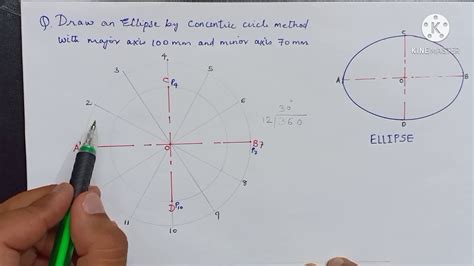 Q. Draw an Ellipse by Concentric circle method
with major axis 100 mm and minor axis 70 mm
KINEMASTER
4,
3
5
C P4
C
2
6
30°
12 360
A
O
B
A'
O
B 7
P3
D
ELLIPSE
8
D P10
11
9
10